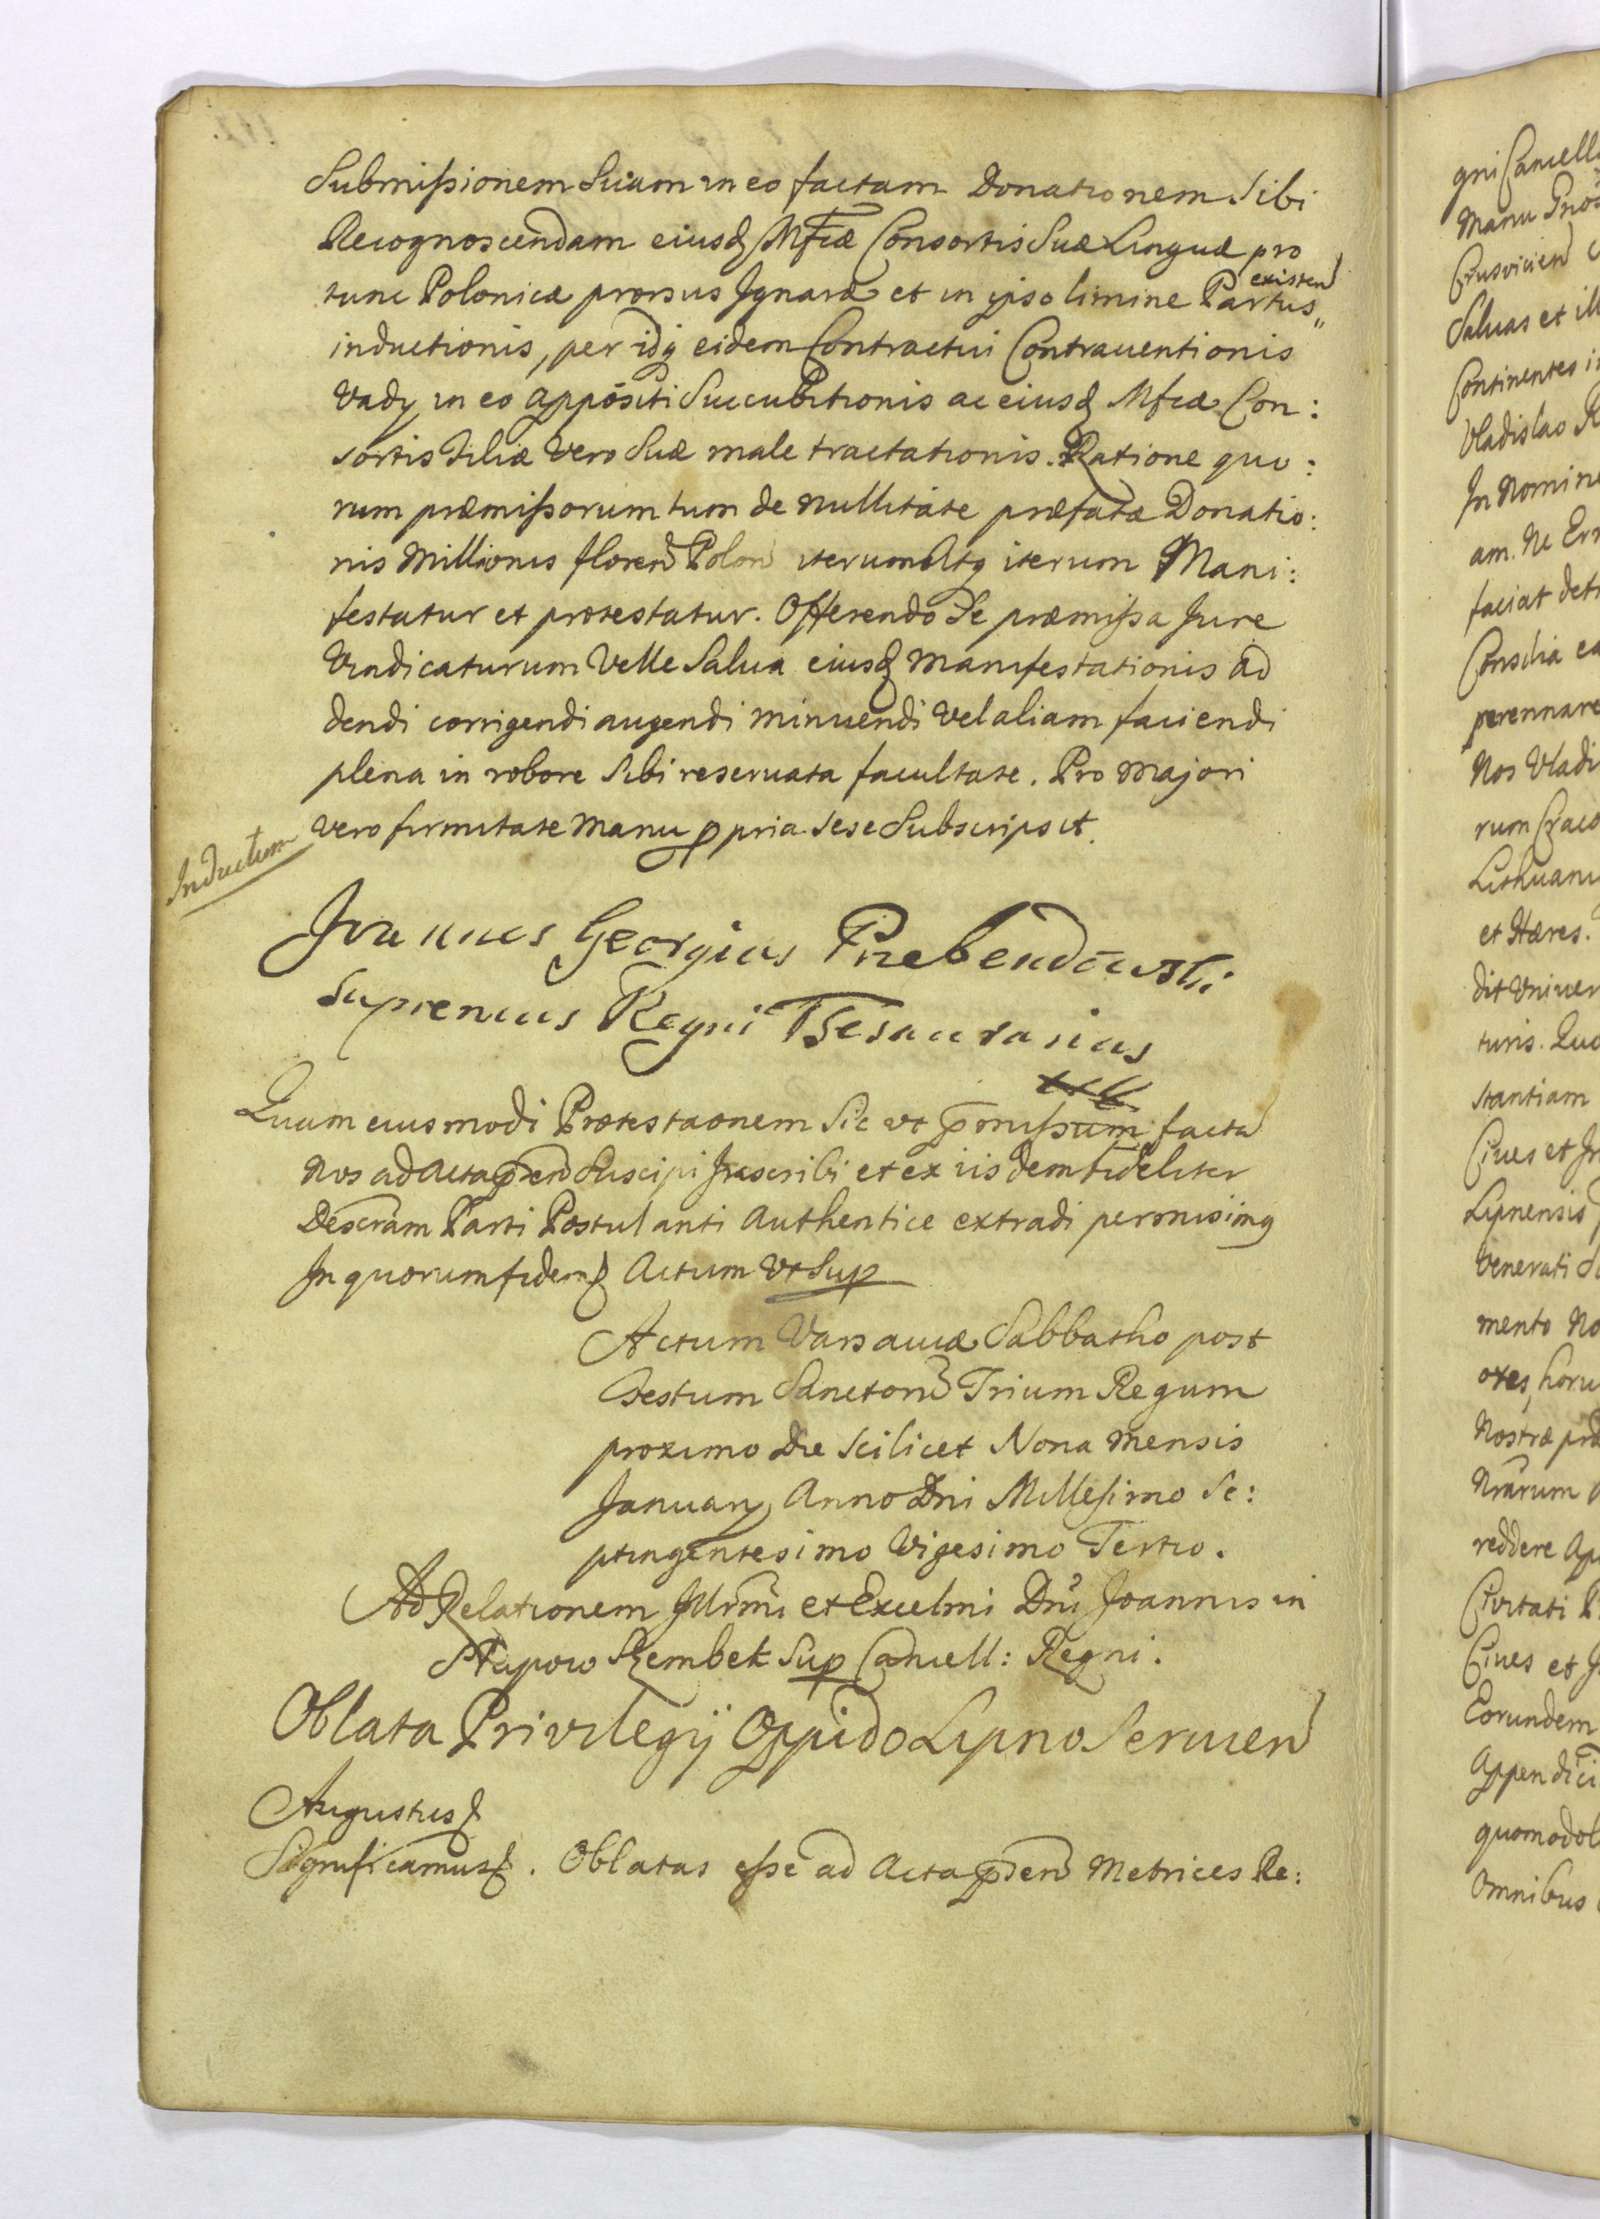 Submissionem Suam in eo factam Donationem Sibi
Recognoscendam eiusq Mfcæ Consortis Suæ Linguæ pro
tunc Polonicæ prorsus Ignaræ et in ipso limine Partus existen
inductionis, per idq eidem Contractui Contrauentionis
Vady in eo appositi Succubitionis ac eiusq Mfcæ Con:
sortis Filiæ Vero Suæ male tractationis. Ratione quo:
rum præmissorum tum de nullitate præfatæ Donatio:
nis Millionis floren Polon iterum Atq iterum Mani:
festatur et protestatur. Offerendo Se præmissa Jure
Vindicaturum Velle Salua eiusq Manifestationis ad
dendi corrigendi augendi minuendi Vel aliam faciendi
plena in robore Sibi reseruata facultate. Pro Majori
Vero firmitate Manu ppria sese Subscripsit.
Inductum
Joannes Georgius Przebendowski
Supremus Regni Thesaurarius
Quam eiusmodi Protestaonem Sic ut pmissum facta
Nos ad Acta pñen Suscipi Inscribi et ex iisdem fideliter
Descram Parti Postulanti Authentice extradi permisimq
In quorum fidem Actum Vt Sup
Actum Varsauiæ Sabbatho post
Festum Sanctorũ Trium Regum
proximo Die Scilicet Nona Mensis
January Anno Dni Millesimo Se:
ptingentesimo Vigesimo Tertio.
Ad Relationem Illrmi et Excelmi Dni Joannis in
Słupow Szembek Sup Cancell: Regni.
Oblata Privilegij Oppido Lipno Seruien
Augustus
Significamus. Oblatas esse ad Acta pñen Metrices Re:
gni Cancell
Manu
Crusvicien
Saluas et ill
Continentes
Vladislao R
In Nomine
am. Ne
faciat
Consilia
perennare
Nos Vladi
rum Craco
Lithuani
et Hæres.
dit Vniuer
turis. Quo
stantiam
Ciues et
Lipnensis
Venerati
mento No
horu
Nostræ
Nrarum
reddere
Ciuitati
Ciues et
Eorundem
Appendici
quomodol
Omnibus